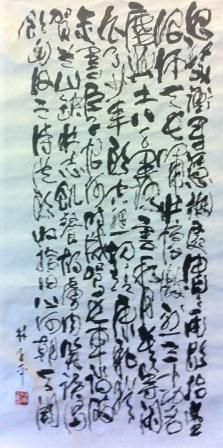 怒髮衝冠憑欄處瀟瀟雨歇抬望
眼仰天長嘯壯懷激烈三十功名
塵與土八千里路雲和月莫等閒
白了少年頭空悲切靖康恥猶
未雪臣子恨何時滅駕長車踏破
賀蘭山缺壯志飢餐胡虜肉笑談渴
飲匈奴血待從頭收拾舊山河朝天闕